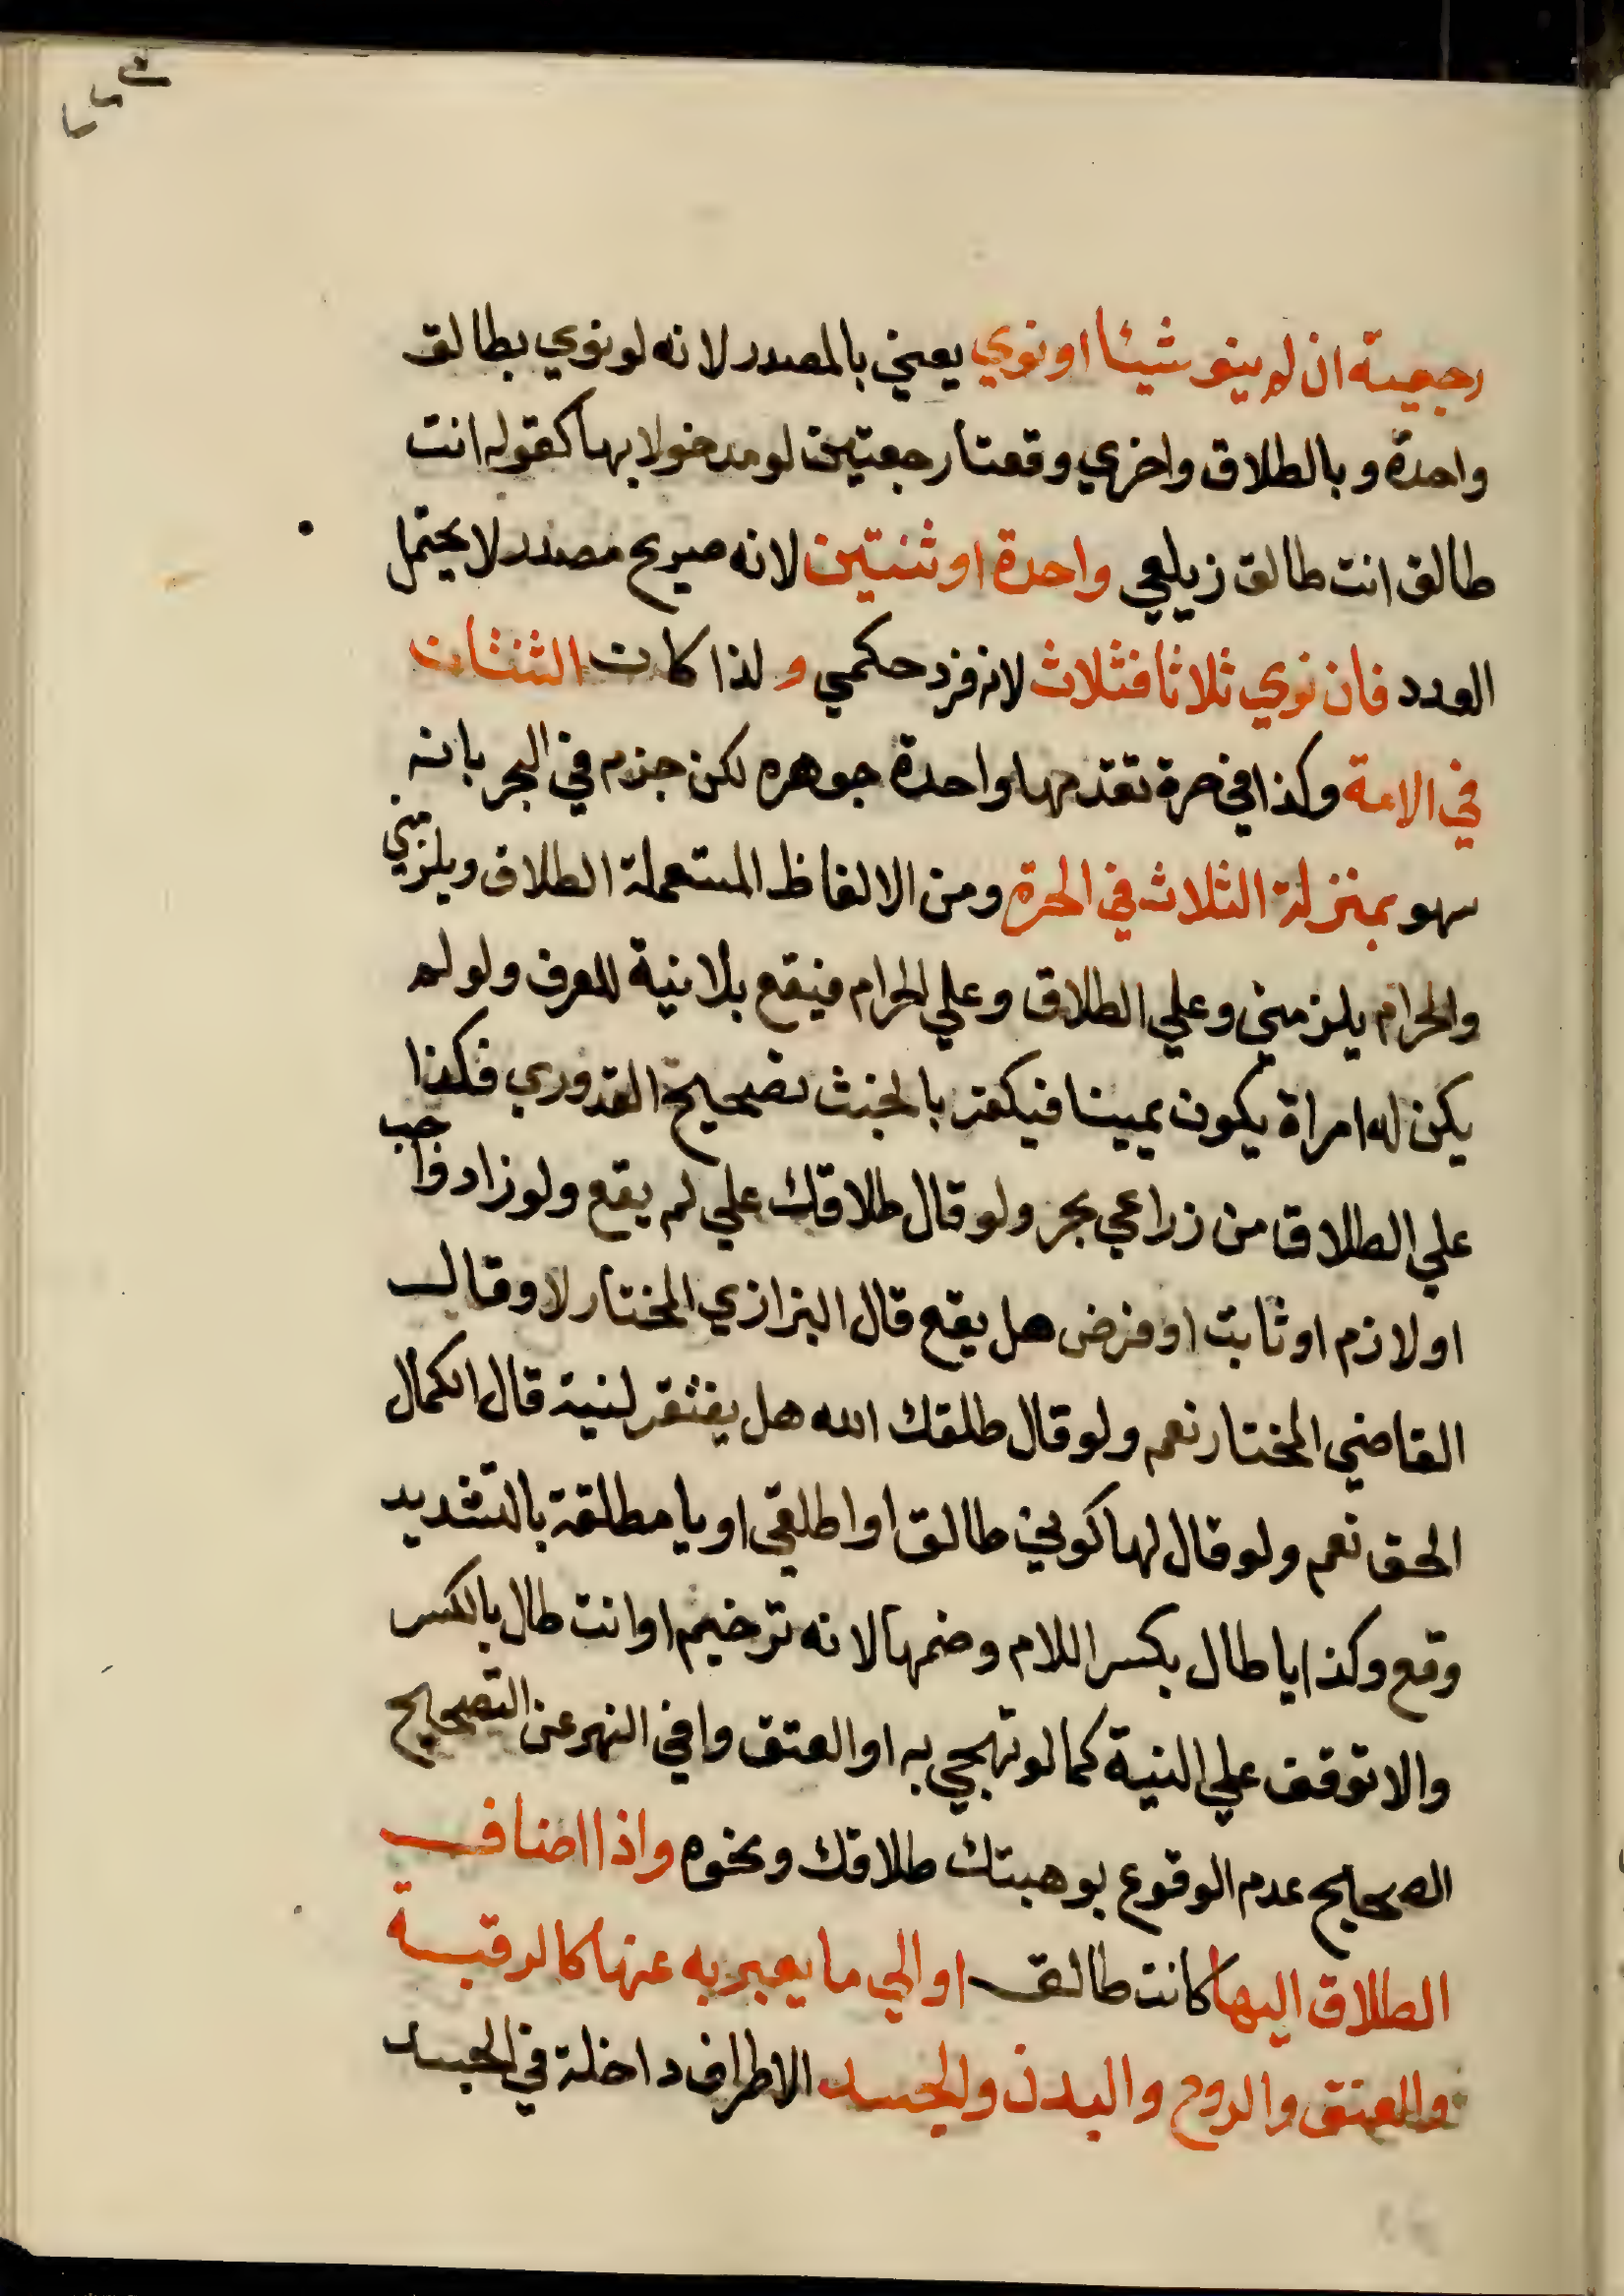 رجعية ان لم ينو شيئا او نوي يعني بالمصدر لانه لو نوي بطالق
واحدة وبالطلاق واخري وقعتا رجعيتين لو مدخولا بها كقوله انت
طالق انت طالق زيلعي واحدة او ثنتين لانه صريح مصدر لا يحتمل
العدد فان نوي ثلاثا فثلاث لانه فرد حكمي و لذا كان الثنتان
في الامة وكذا في حرة تقدمها واحدة جوهره لكن جزم في البحر بانه
سهو بمنزلة الثلاث في الحرة ومن الالفاظ المستعملة الطلاق ويلزمني
والحرام يلزمني وعلي الطلاق وعلي الحرام فيقع بلا نية للعرف ولو لم
يكن له امراة يكون يمينا فيكفر بالحنث تصحيح القدوري فكذا
علي الطلاق من زراعي بحر ولو قال طلاقك علي لم يقع ولو زاد واجب
او لازم او ثابت او فرض هل يقع قال البزازي المختار لا وقال
القاضي المختار نعم ولو قال طلقك الله هل يفتقر لنية قال الكمال
الحق نعم ولو قال لها كوني طالق او اطلقي او يا مطلقة بالتشديد
وقع وكذا يا طال بكسر اللام وضمها لانه ترخيم او انت طال بالكسر
والا توقف علي النية كما لو تهجي به او العتق وافي النهر عن التصحيح
الصحيح عدم الوقوع بوهبتك طلاقك ونحوه واذا اضاف
الطلاق اليها كانت طالق او الي ما يعبر به عنها كالرقبة
والعنق والروح والبدن والجسد الاطراف داخلة في الجسد